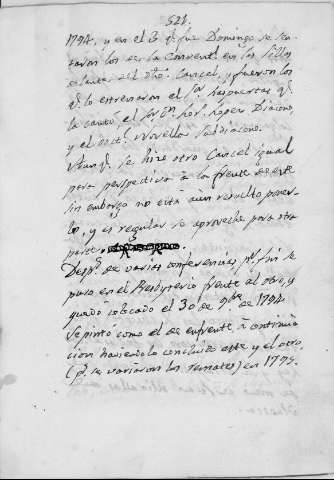 521.
1794, y en el 2 q.e fue Domingo se sen-
taron los de la Convent.l en las Sillas
delante del dho. Cancel, y fueron los
q.e lo estrenaron el S.or
la cantó el S.or D.n Jos. Lopez Diacono,
y el Doct.r Novellas Subdiacono.
Aunq.e se hizo otro Cancel igual
para perspectiva a la frente de este
sin embargo no está aún resuelto poner-
lo, y es regular se aproveche para otra
parte.
Desp.s de varias conferencias p.r fin se
puso en el Presbyterio frente al otro, y
quedó colocado el 30 de 9.bre de 1794.
Se pintó como el de enfrente à continua
cion haviendolo concluido este y el otro,
(p.s se variaron los remates) en 1795.